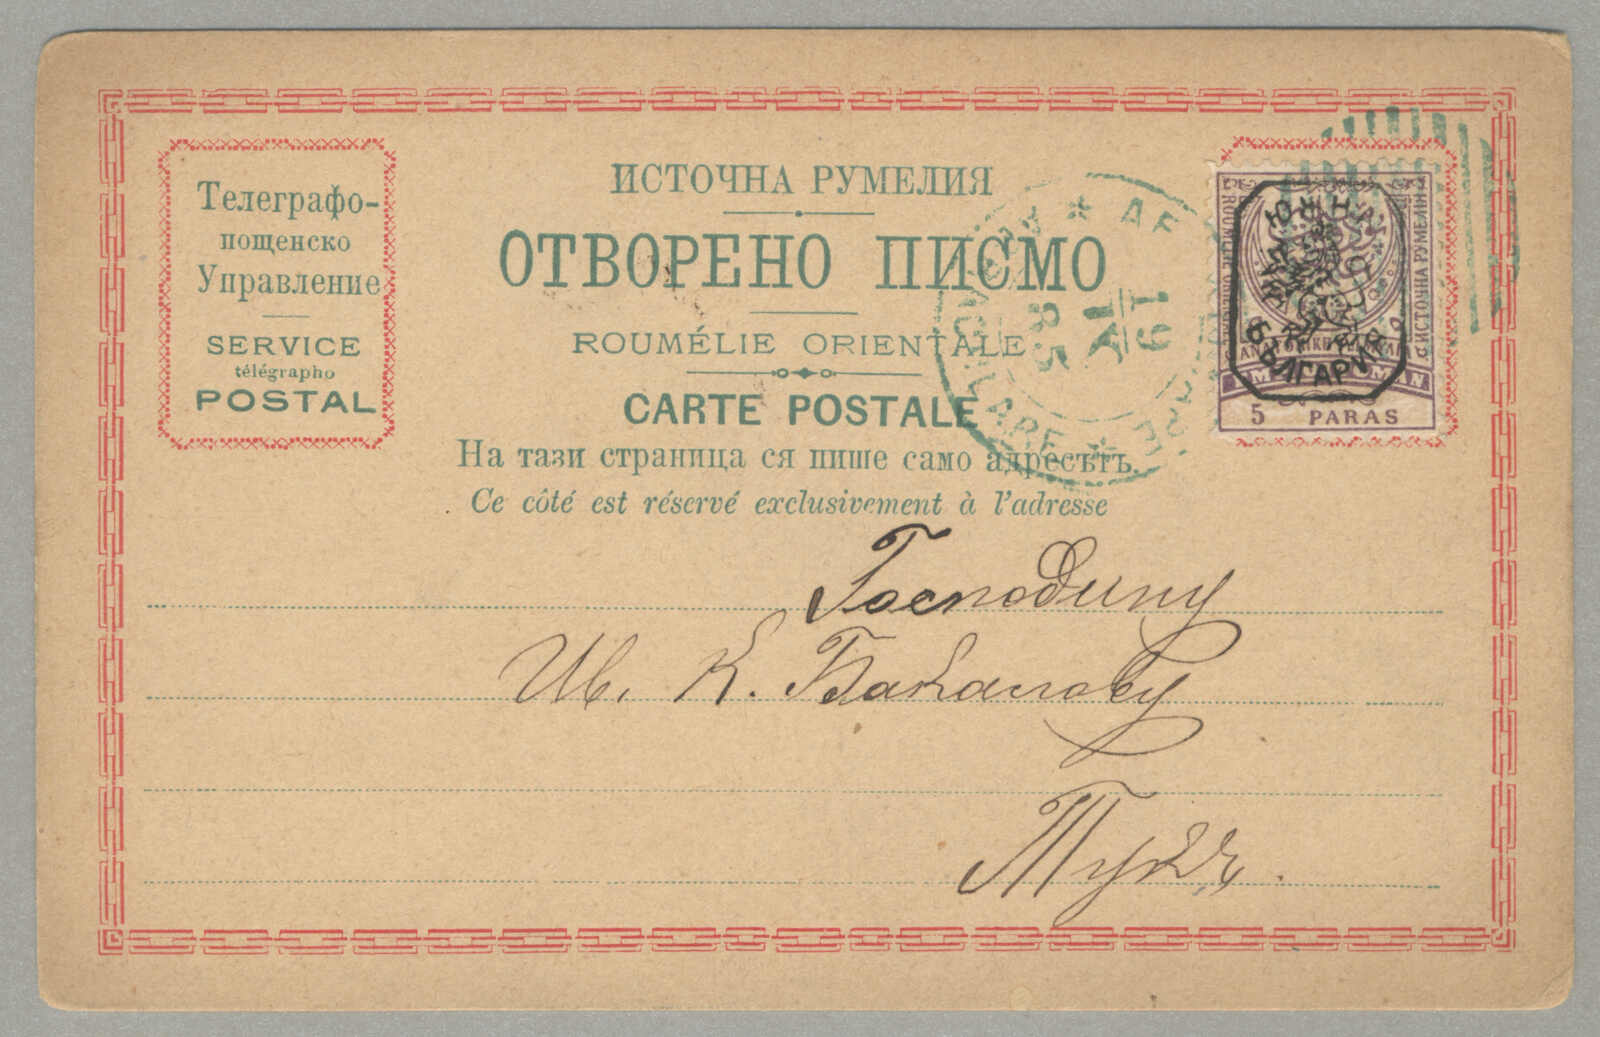 Телеграфо-
пощенско
Управление
SERVICE
télégrapho
POSTAL
ИСТОЧНА РУМЕЛИЯ
ОТВОРЕНО ПИСМО
ROUMÉLIE ORIENTALE
CARTE POSTALE
На тази страница ся пише само адресътъ.
Ce côté est réservé exclusivement à l'adresse
ЮЖНА
БЪЛГАРИЯ
ИСТОЧНА РУМЕЛИЯ
5 PARAS
85
VI
19
Господину
Ив. К. Бакалову
Тукъ.